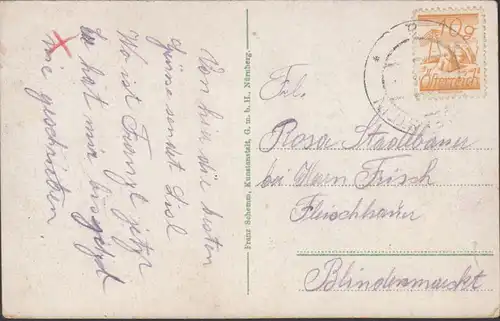 Von hier die besten
Grüsse sendet Lisl
Wo ist Franzl jetzt
Er hat mir
nie geschrieben.
Franz Schemm, Kunstanstalt, G. m. b. H., Nürnberg.
10 g
Österreich
Frl.
Rosa Stadlbauer
bei Herrn Frisch
Fleischhauer
Blindenmarkt